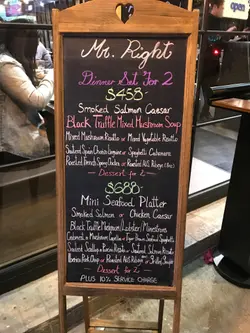 Mr. Right
Dinner Set For 2
$458-
Smoked Salmon Caesar
Black Truffle Mixed Mushroom Soup
Mixed Mushroom Risotto or Mixed Vegetable Risotto
Seafood Spicy Linguine or Spaghetti Carbonara
Roasted French Spring Chicken or Roasted AUS Ribeye
Dessert for 2
$688-
Mini Seafood Platter
Smoked Salmon or Chicken Caesar
Black Truffle Mushroom / Lobster / Minestrone
Carbonara or Mushroom or Seafood Spaghetti
Seafood or Risotto
Pork Chop or Roasted AUS
Dessert for 2
PLUS 10% SERVICE CHARGE